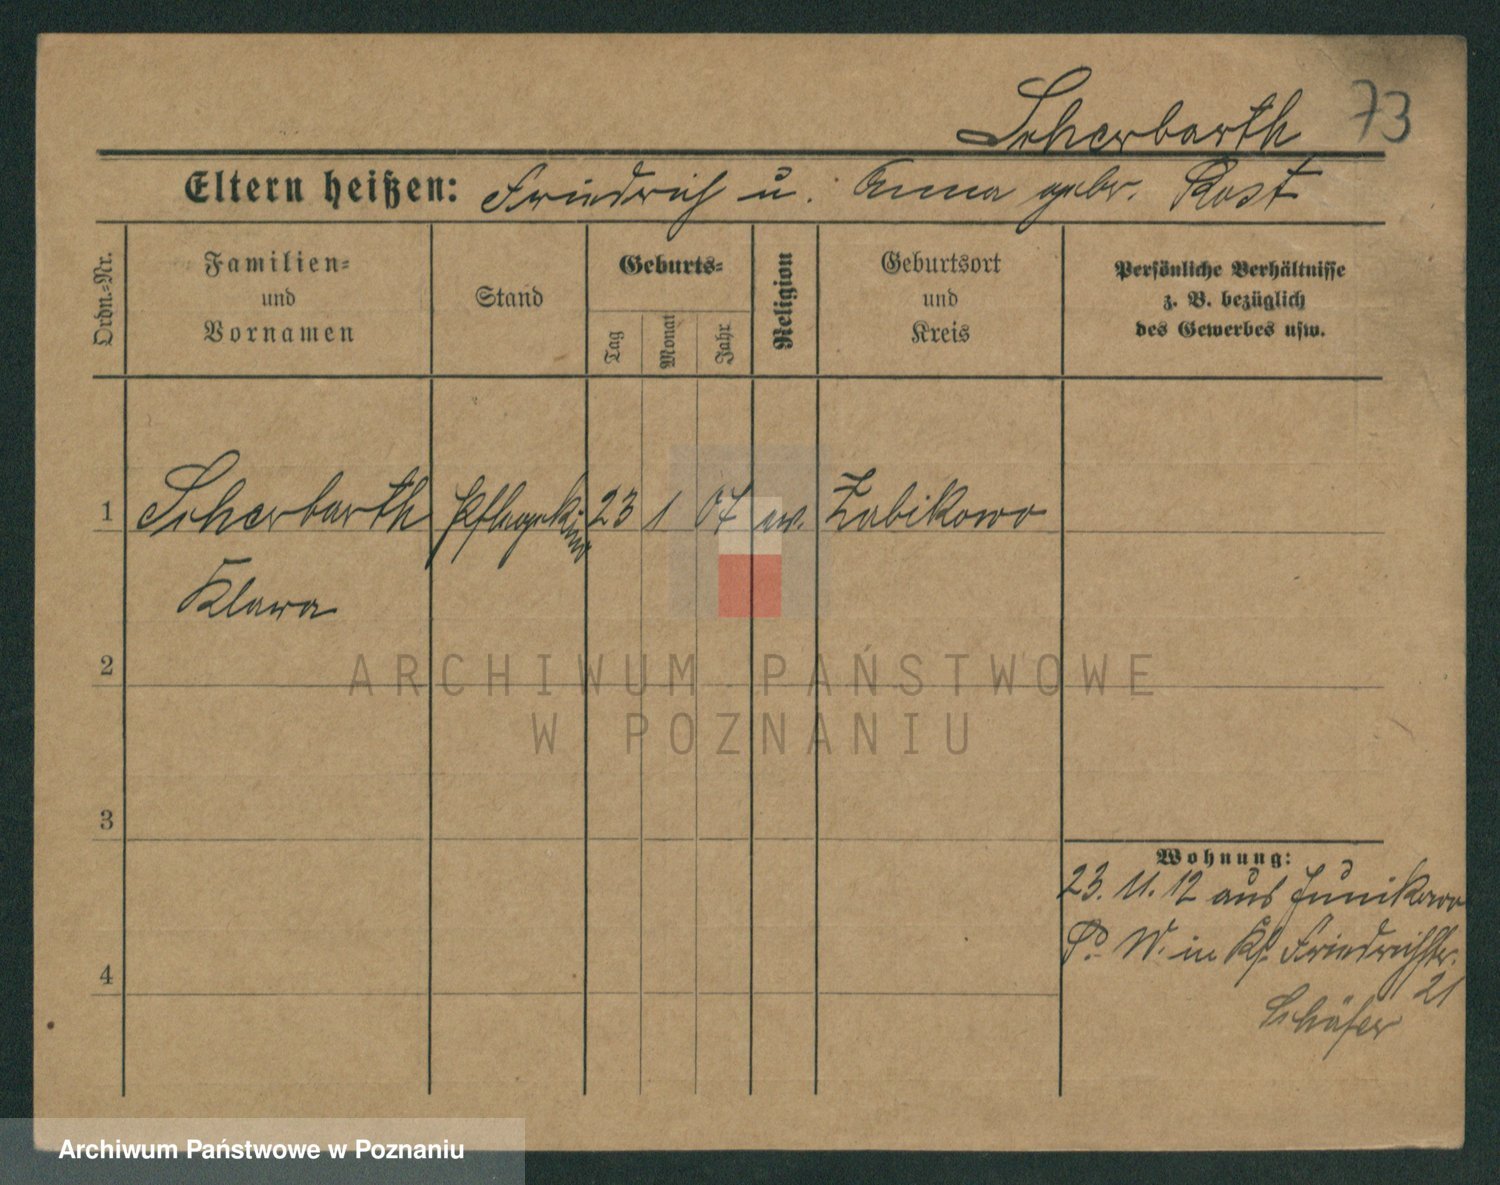 Scherbarth 73
Eltern heißen: Friedrich u. Anna gebr. Rost
Ordn.-Nr.
Familien-
und
Vornamen
Stand
Geburts-
Tag
Monat
Jahr
Religion
Geburtsort
und
Kreis
Persönliche Verhältnisse
z. B. bezüglich
des Gewerbes usw.
1 Scherbarth Pflegekind 23 1 07 ev. Zabikowo
Klara
2
3
4
Wohnung:
23. 11. 12 aus Junikowo
P. W. in Friedrichstr.
21
Schäfer
ARCHIWUM PAŃSTWOWE
W POZNANIU
Archiwum Państwowe w Poznaniu